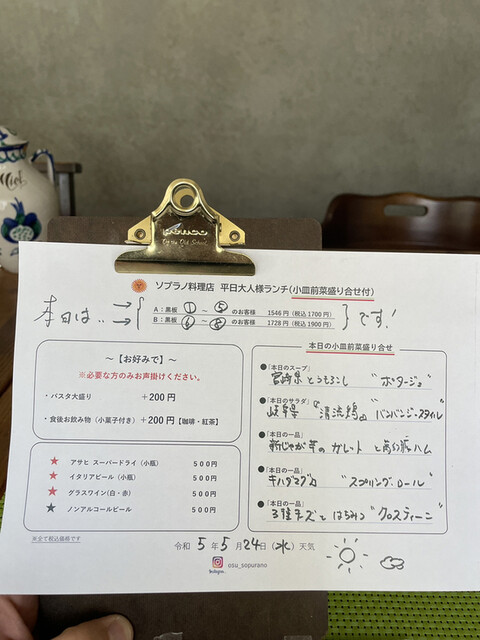 ソプラノ料理店 平日大人様ランチ(小皿前菜盛り合せ付)
本日は‥ → → { A：黒板 ① ～ ⑤ のお客様 1546円 (税込1700円) } です!
B：黒板 ⑥ ～ ⑧ のお客様 1728円 (税込1900円)
～【お好みで】～
※必要な方のみお声掛けください。
・パスタ大盛り +200円
・食後お飲み物（小菓子付き） +200円【珈琲・紅茶】
★ アサヒ スーパードライ（小瓶） 500円
★ イタリアビール（小瓶） 500円
★ グラスワイン(白・赤) 500円
★ ノンアルコールビール 500円
※全て税込価格です
本日の小皿前菜盛り合せ
●「本日のスープ」
宮崎県 とうもろこし "ポタージュ"
●「本日のサラダ」
岐阜県 『清流鶏』 "バンバンジースタイル"
●「本日の一品」
新じゃが芋の ガレット と ハム
●「本日の一品」
キハダマグロ "スプリングロール"
●「本日の一品」
チーズ と はちみつ "クロスティーニ"
令和 5年 5月 24日 (水) 天気
Instagram
osu_sopurano
Miel